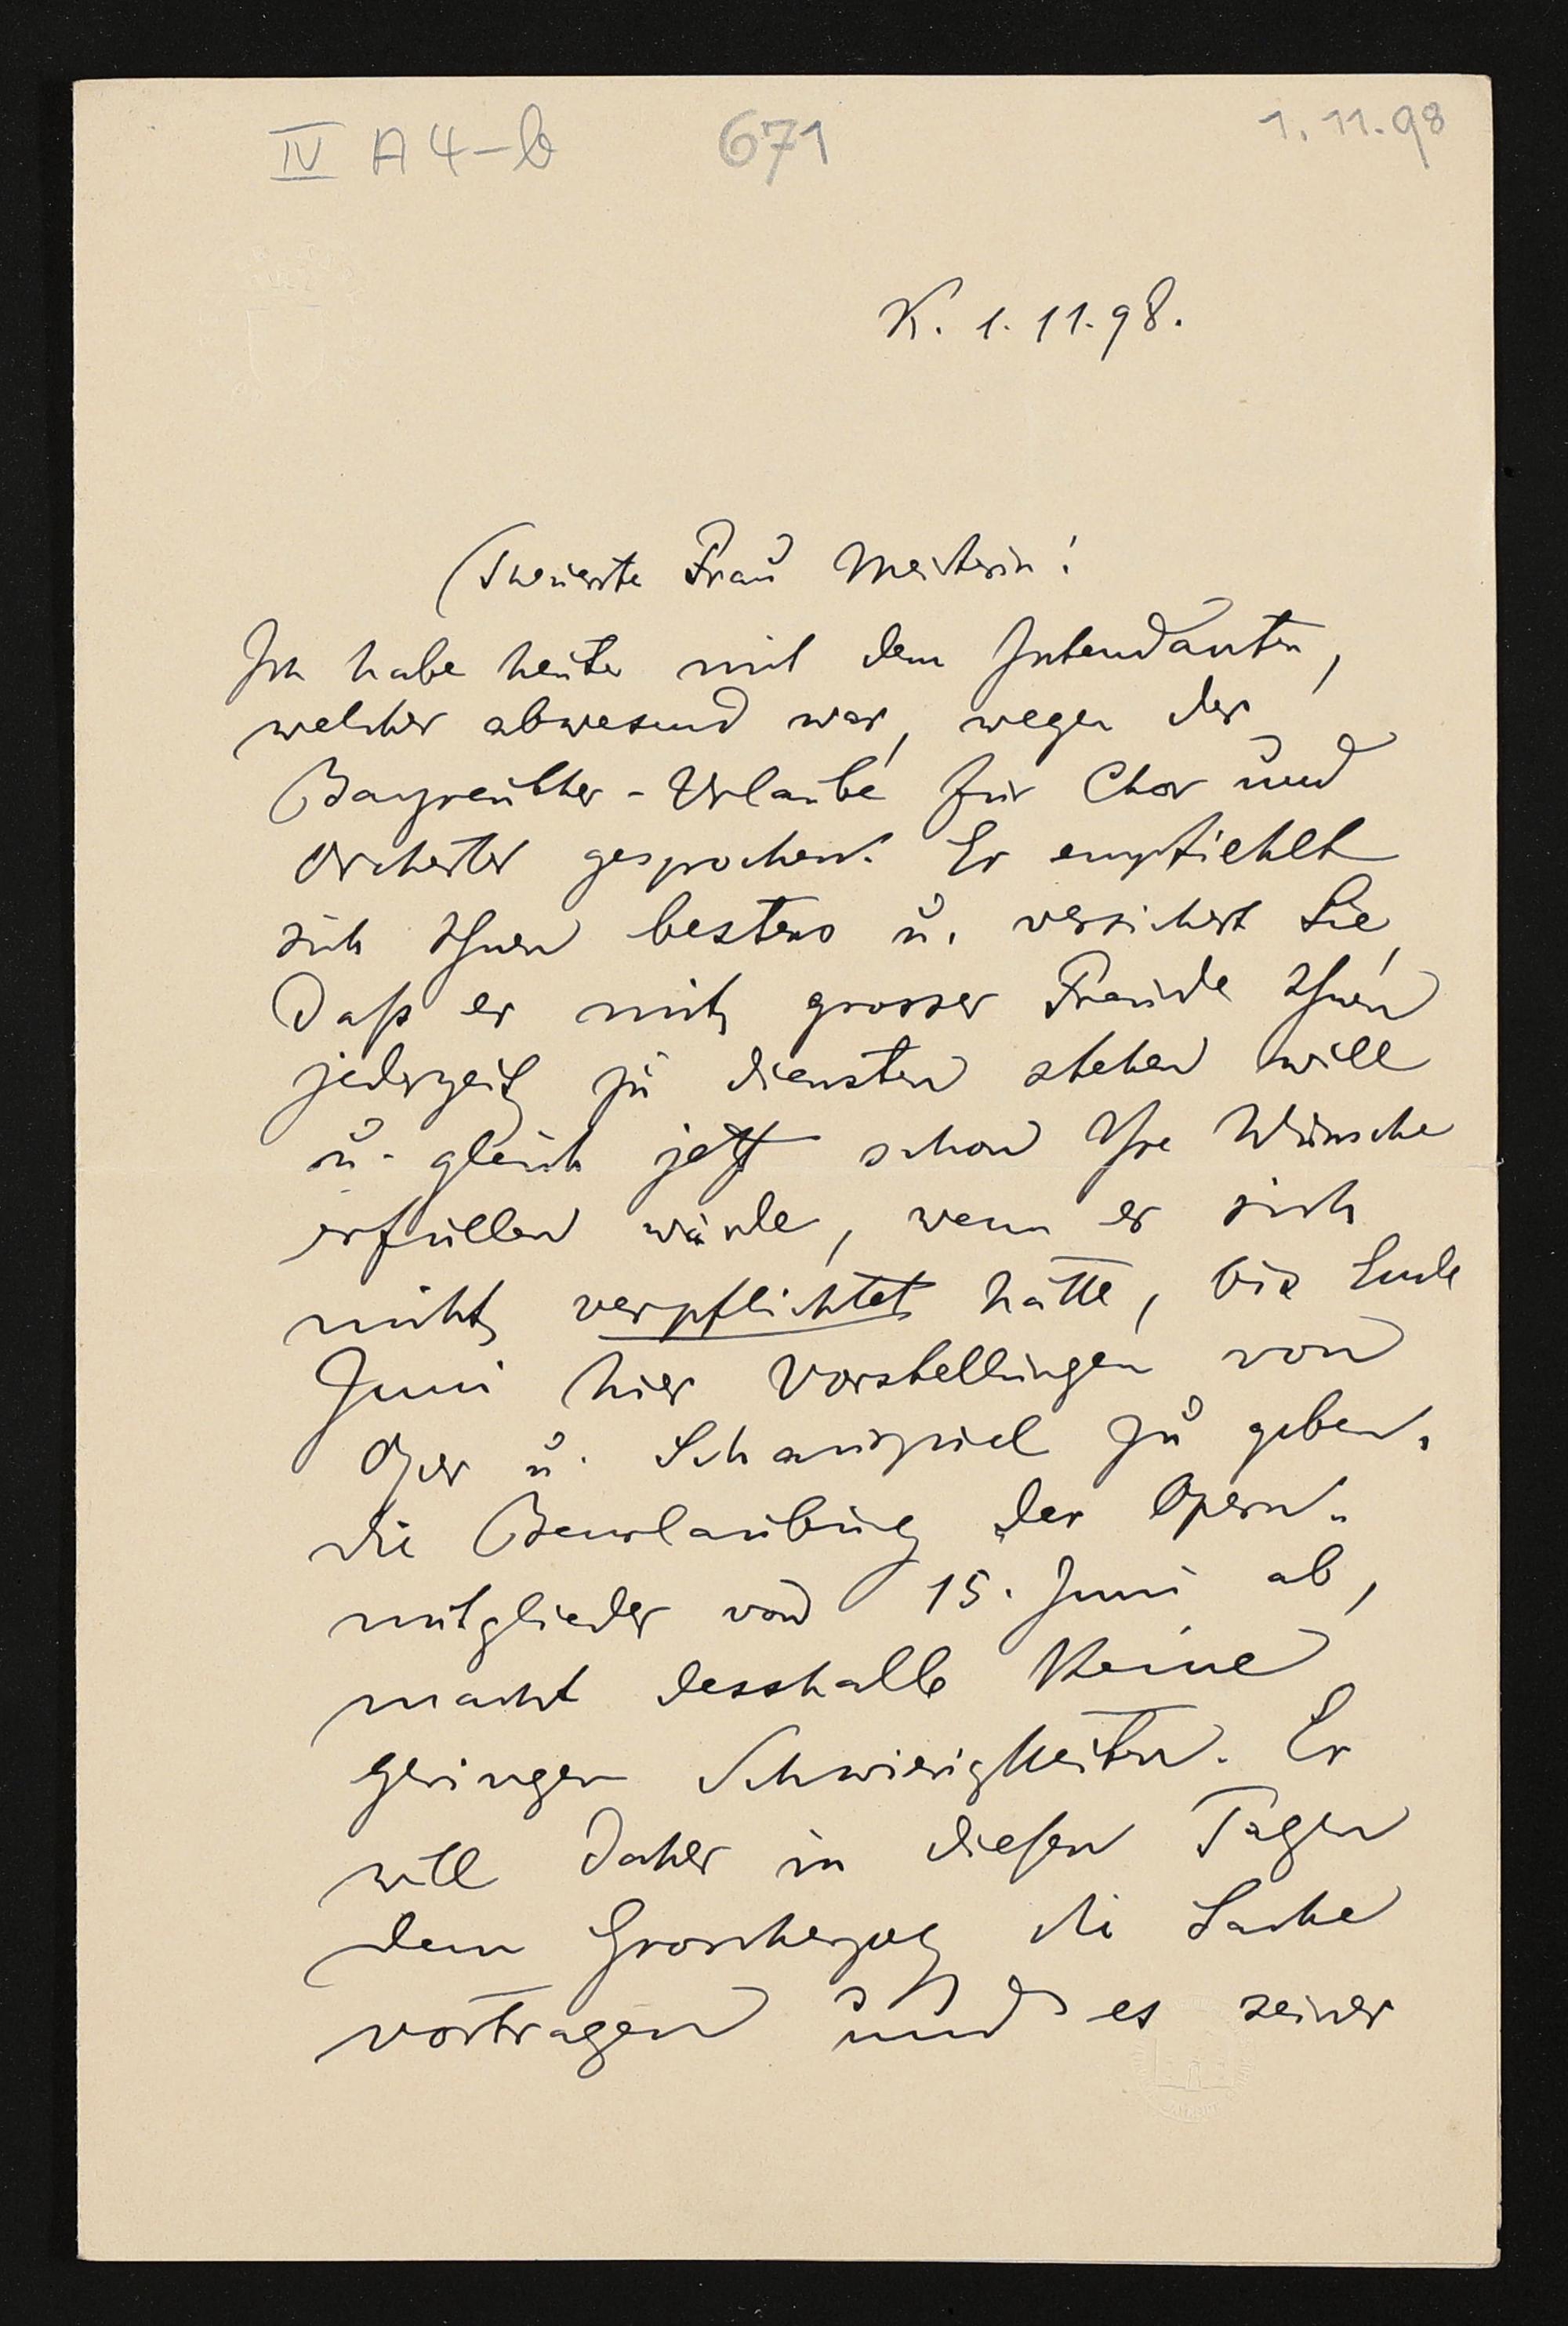 IV A 4-b 671 1.11.98
K. 1.11.98.
Theuerste Frau Meisterin!
Ich habe heute mit dem Intendanten,
welcher abwesend war, wegen der
Bayreuther-Urlaube für Chor und
Orchester gesprochen. Er empfiehlt
sich Ihnen bestens u. versichert Sie,
daß er mit grosser Freude Ihnen
jederzeit zu diensten stehen will
u. gleich jetzt schon Ihre Wünsche
erfüllen würde, wenn er sich
nicht verpflichtet hätte, bis Ende
Juni hier Vorstellungen von
Oper u. Schauspiel zu geben.
die Beurlaubung der Opern-
mitglieder von 15. Juni ab,
macht desshalb keine
geringen Schwierigkeiten. Er
will daher in diesen Tagen
dem Grossherzog die Sache
vortragen und es seiner